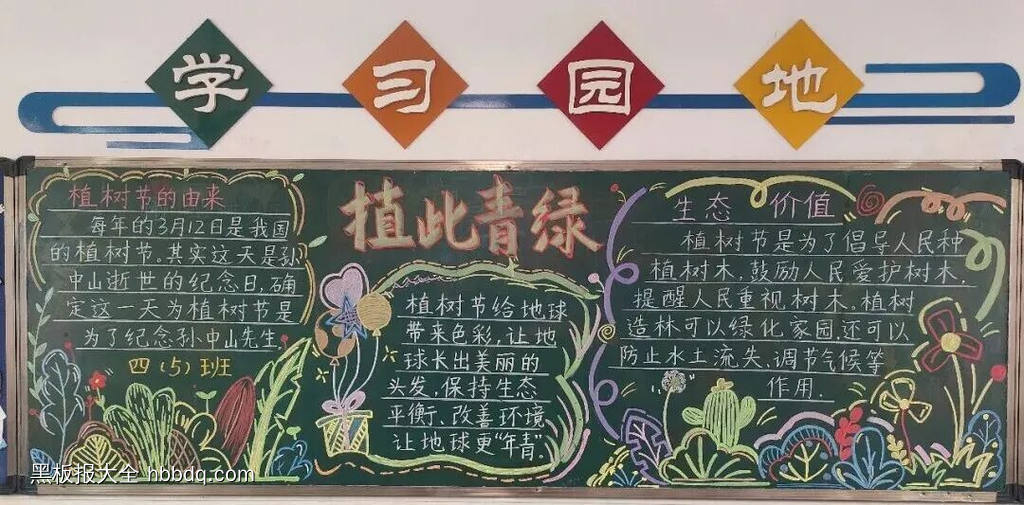 学习园地
植此青绿
植树节的由来
每年的3月12日是我国
的植树节。其实这天是孙
中山逝世的纪念日,确
定这一天为植树节是
为了纪念孙中山先生.
四(5)班
植树节给地球
带来色彩,让地
球长出美丽的
头发,保持生态
平衡、改善环境
让地球更“年青”.
生态 价值
植树节是为了倡导人民种
植树木,鼓励人民爱护树木.
提醒人民重视树木。植树
造林可以绿化家园还可以
防止水土流失、调节气候等
作用.
黑板报大全 hbbdq.com